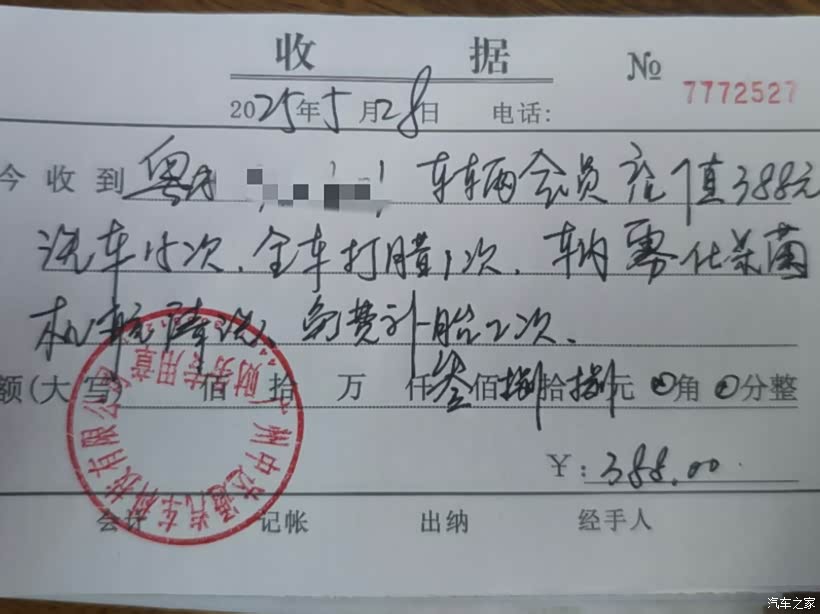 收 据 № 7772527
2025年5月28日 电话:
今收到粤 车辆会员充值388元
洗车15次、全车打腊1次、车内雾化杀菌
免费补胎2次、
额(大写) 佰 拾 万 仟叁佰捌拾捌元0角0分整
¥:388.00
会计 记帐 出纳 经手人
广州中达通汽车科技有限公司
财务专用章
汽车之家